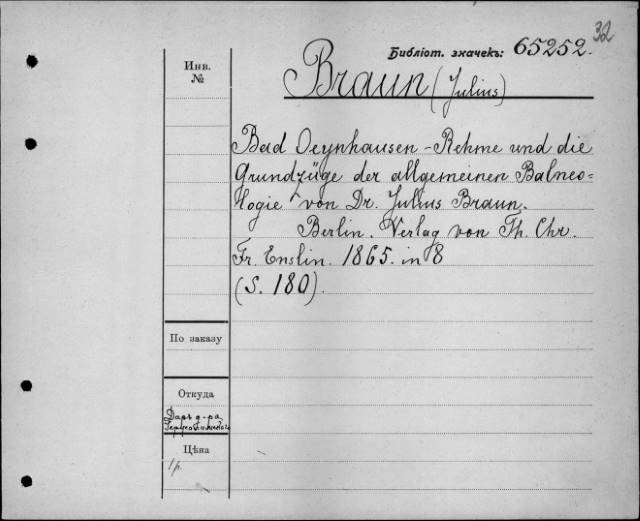 32
Библіот. значекъ: 65252.
Инв.
№
Braun (Julius)
Bad Oeynhausen-Rehme und die
Grundzüge der allgemeinen Balneo=
logie von Dr. Julius Braun.
Berlin. Verlag von Th. Chr.
Fr. Enslin. 1865. in 8
(S. 180).
По заказу
Откуда
Даръ д-ра
Цѣна
1 р.